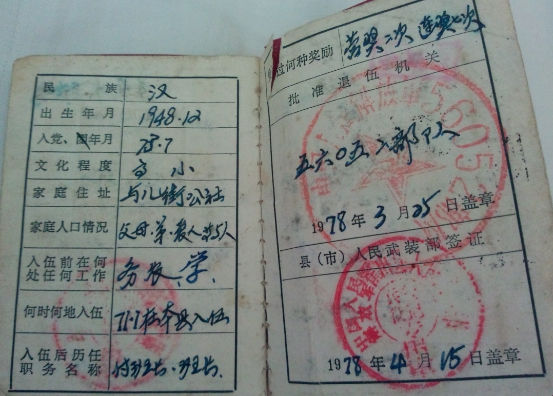 民族 汉
出生年月 1948.12
入党、团年月 75.7
文化程度 高小
家庭住址 街公社
家庭人口情况 父母.弟.妻人共5人
入伍前在何处任何工作 务农、学.
何时何地入伍 71.1在本县入伍
入伍后历任职务名称 付班长.班长.
过何种奖励 营奖二次 连奖七次
批准退伍机关
五六〇五六部队
1978年3月25日盖章
县(市)人民武装部签证
1978年4月15日盖章